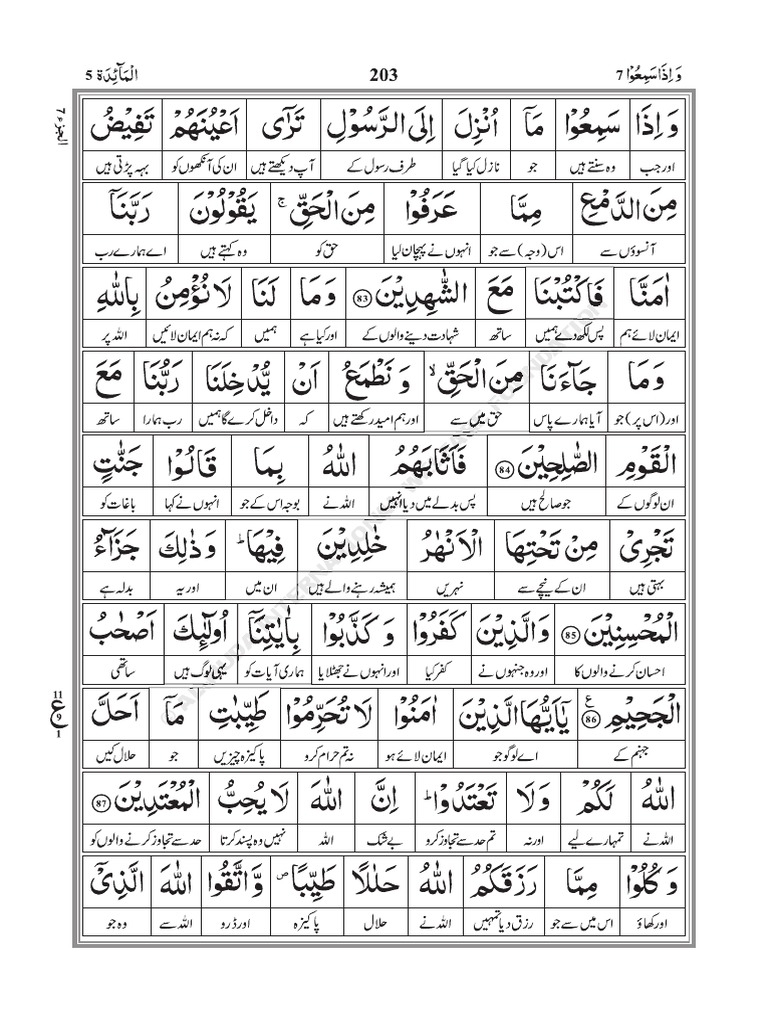 وَاِذَا سَمِعُوْا 7 203 اَلْمَآئِدَة 5
الجزء ٧
وَ اِذَا سَمِعُوْا مَآ اُنْزِلَ اِلَى الرَّسُوْلِ تَرٰٓى اَعْيُنَهُمْ تَفِيْضُ
اور جب وہ سنتے ہیں جو نازل کیا گیا طرف رسول کے آپ دیکھتے ہیں ان کی آنکھوں کو بہہ پڑتی ہیں
مِنَ الدَّمْعِ مِمَّا عَرَفُوْا مِنَ الْحَقِّ ۚ يَقُوْلُوْنَ رَبَّنَآ
آنسوؤں سے اس (وجہ) سے جو انہوں نے پہچان لیا حق کو وہ کہتے ہیں اے ہمارے رب
اٰمَنَّا فَاكْتُبْنَا مَعَ الشّٰهِدِيْنَ 83 وَ مَا لَنَا لَا نُؤْمِنُ بِاللّٰهِ
ایمان لائے ہم پس لکھ دے ہمیں ساتھ شہادت دینے والوں کے اور کیا ہے ہمیں کہ نہ ہم ایمان لائیں اللہ پر
وَمَا جَآءَنَا مِنَ الْحَقِّ ۙ وَ نَطْمَعُ اَنْ يُّدْخِلَنَا رَبُّنَا مَعَ
اور (اس پر) جو آیا ہمارے پاس حق میں سے اور ہم امید رکھتے ہیں کہ داخل کرے گا ہمیں رب ہمارا ساتھ
الْقَوْمِ الصّٰلِحِيْنَ 84 فَاَثَابَهُمُ اللّٰهُ بِمَا قَالُوْا جَنّٰتٍ
ان لوگوں کے جو صالح ہیں پس بدلے میں دیا انہیں اللہ نے بوجہ اس کے جو انہوں نے کہا باغات کو
تَجْرِيْ مِنْ تَحْتِهَا الْاَنْهٰرُ خٰلِدِيْنَ فِيْهَا ؕ وَ ذٰلِكَ جَزَآءُ
بہتی ہیں ان کے نیچے سے نہریں ہمیشہ رہنے والے ہیں ان میں اور یہ بدلہ ہے
الْمُحْسِنِيْنَ 85 وَالَّذِيْنَ كَفَرُوْا وَ كَذَّبُوْا بِاٰيٰتِنَآ اُولٰٓئِكَ اَصْحٰبُ
احسان کرنے والوں کا اور وہ جنہوں نے کفر کیا اور انہوں نے جھٹلایا ہماری آیات کو یہی لوگ ہیں ساتھی
الْجَحِيْمِ 86 ع يٰٓاَيُّهَا الَّذِيْنَ اٰمَنُوْا لَا تُحَرِّمُوْا طَيِّبٰتِ مَآ اَحَلَّ
11 ع 9 1
جہنم کے اے لوگو جو ایمان لائے ہو نہ تم حرام کرو پاکیزہ چیزیں جو حلال کیں
اللّٰهُ لَكُمْ وَلَا تَعْتَدُوْا ؕ اِنَّ اللّٰهَ لَا يُحِبُّ الْمُعْتَدِيْنَ 87
اللہ نے تمہارے لیے اور نہ تم حد سے تجاوز کرو بے شک اللہ نہیں وہ پسند کرتا حد سے تجاوز کرنے والوں کو
وَ كُلُوْا مِمَّا رَزَقَكُمُ اللّٰهُ حَلٰلًا طَيِّبًا ۖ وَّ اتَّقُوا اللّٰهَ الَّذِيْٓ
اور کھاؤ اس میں سے جو رزق دیا تمہیں اللہ نے حلال پاکیزہ اور ڈرو اللہ سے وہ جو